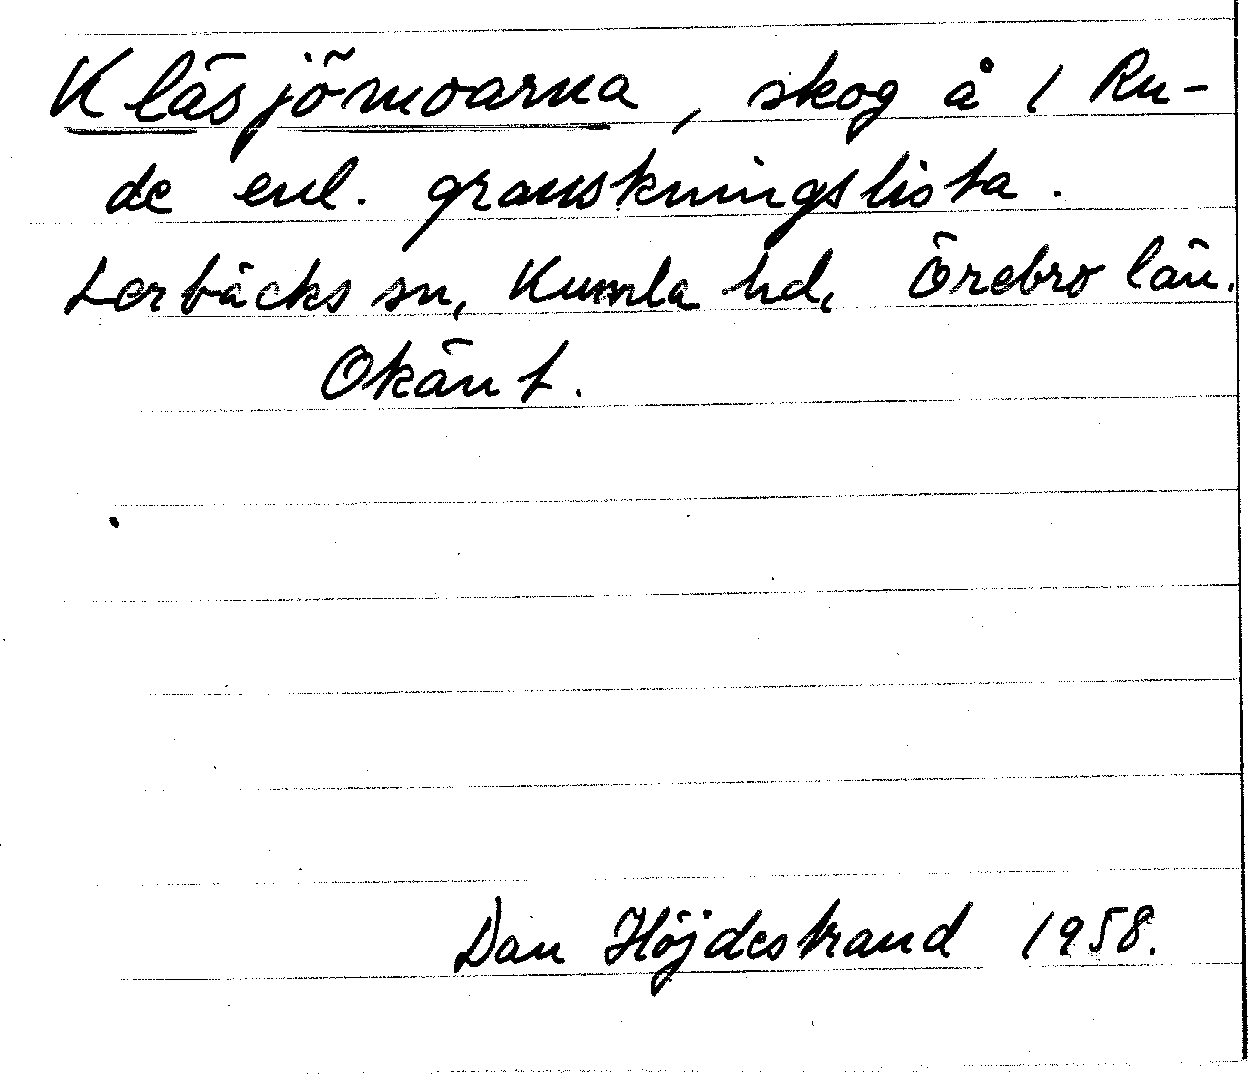 Kläsjömoarna, skog å 1 Ru-
de enl. granskningslista.
Lerbäcks sn, Kumla hd, Örebro län.
Okänt.
Dan Höjdestrand 1958.